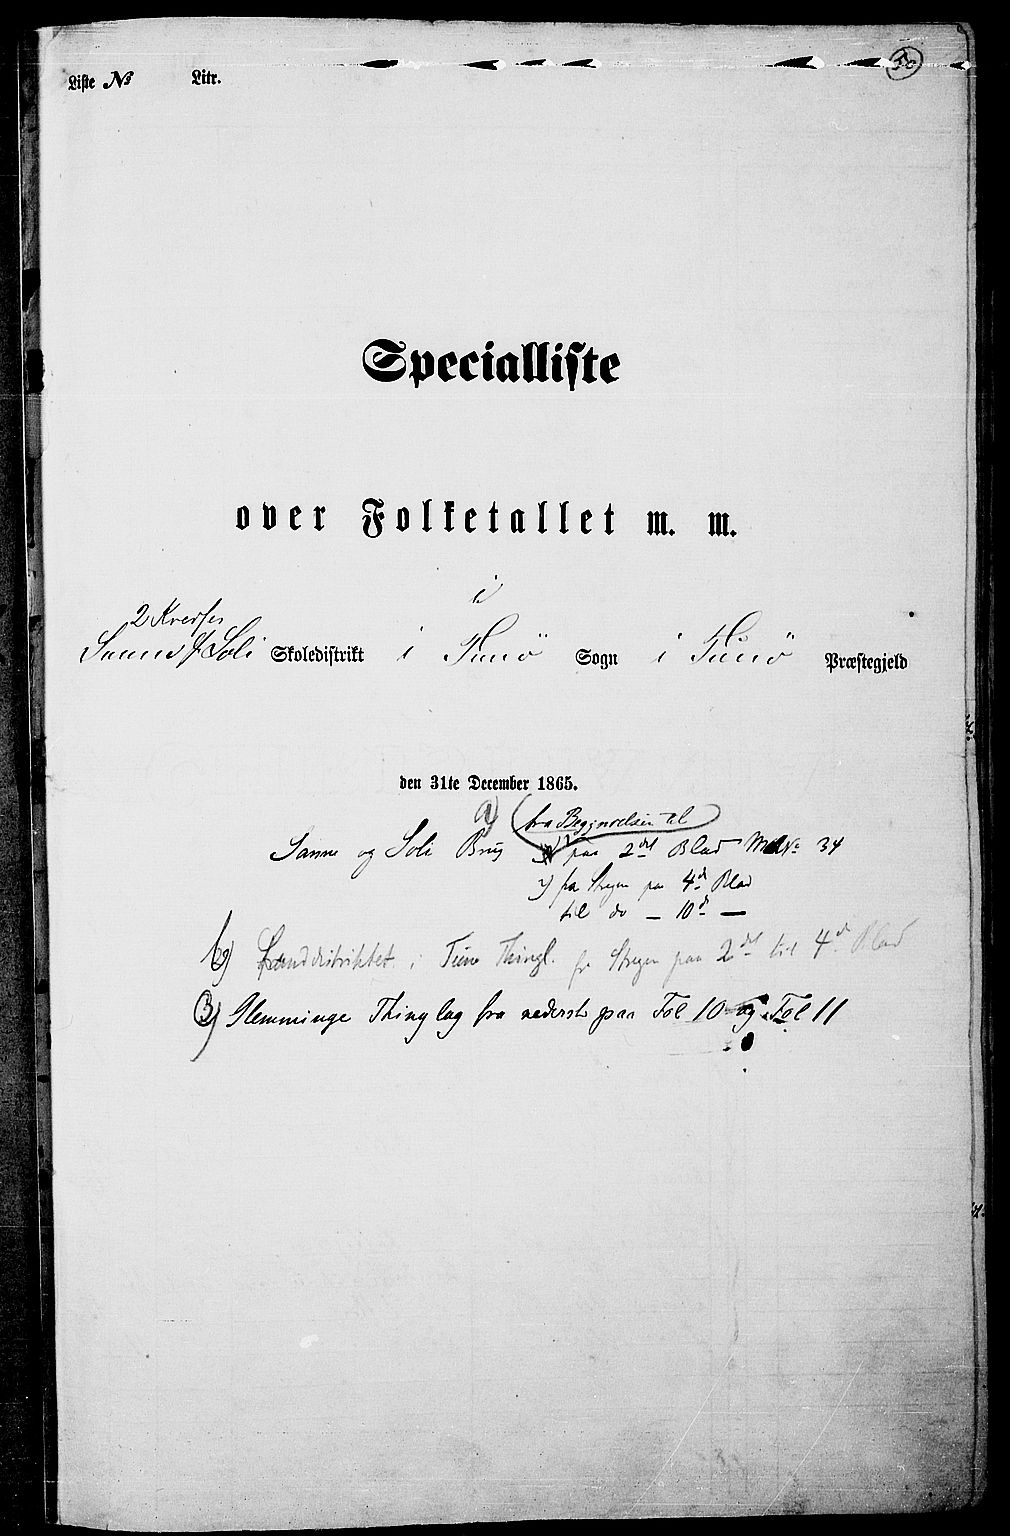 Liste № Litr.
Specialliste
over Folketallet m. m.
i
2 Kredse
Sanne & Soli Skoledistrikt i Tunö Sogn i Tunö Præstegjeld
den 31te December 1865.
a) fra Begyndelsen til
Sanne og Soli Brug paa 2det Blad M № 34
2) fra Stregen paa 4de Blad
til do — 10de —
b) Landdistriktet i Tune Thingl. fr Stregen paa 2det til 4de Blad
3) Glemminge Thinglag fra nederst paa Fol 10 og Fol 11